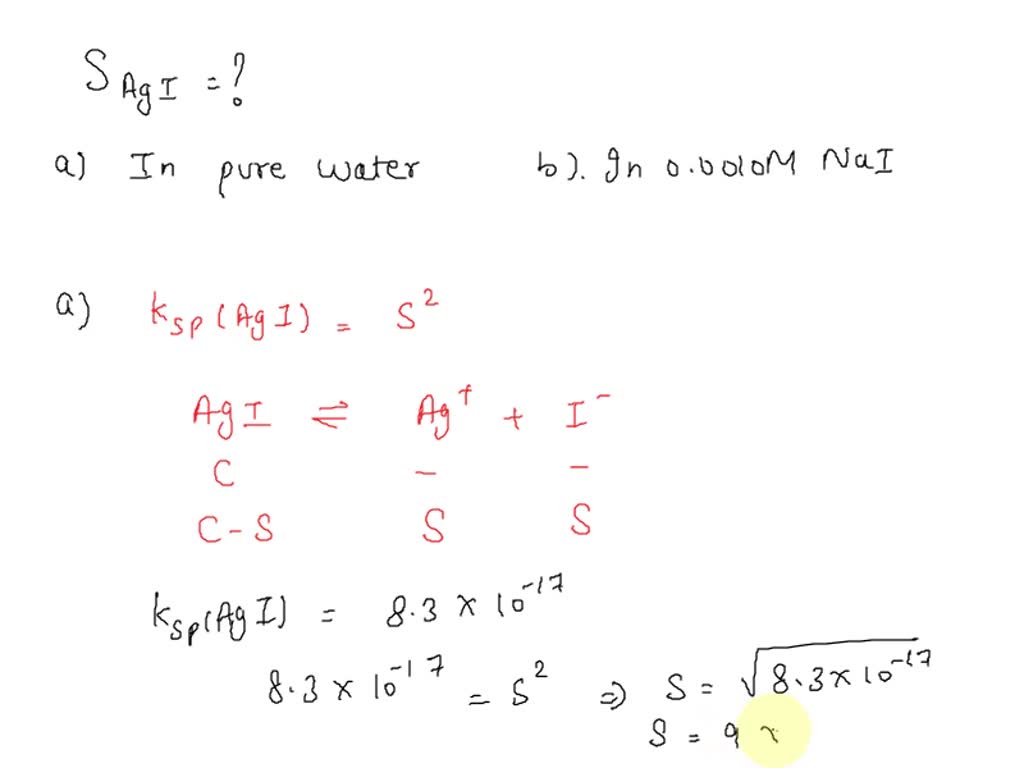 S AgI = ?
a) In pure water b). In 0.0010M NaI
a) Ksp(AgI) = S²
AgI ⇌ Ag⁺ + I⁻
C – –
C-S S S
Ksp(AgI) = 8.3 × 10⁻¹⁷
8.3 × 10⁻¹⁷ = S² ⇒ S = √8.3×10⁻¹⁷
S = 9 ×